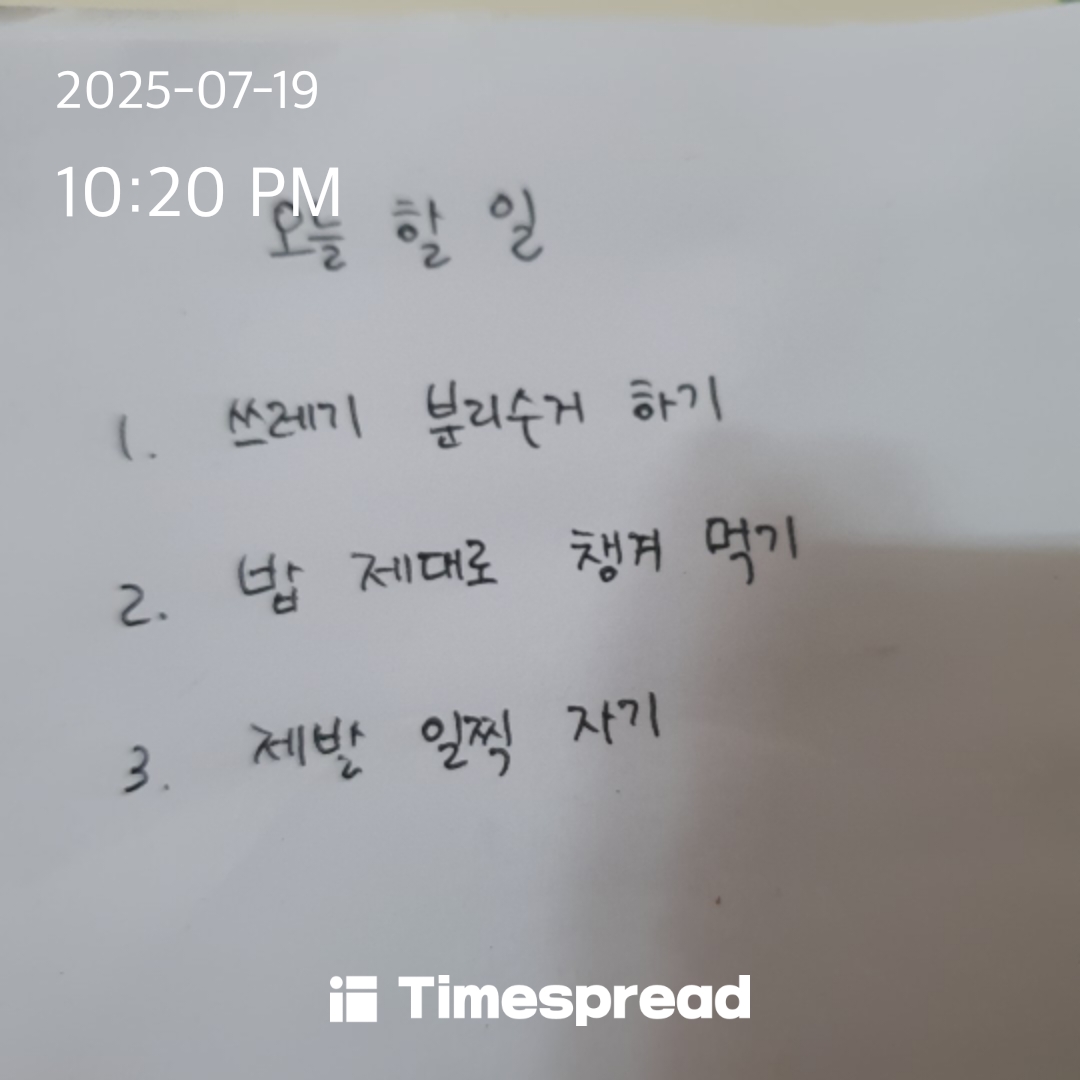 2025-07-19
10:20 PM
오늘 할 일
1. 쓰레기 분리수거 하기
2. 밥 제대로 챙겨 먹기
3. 제발 일찍 자기
Timespread